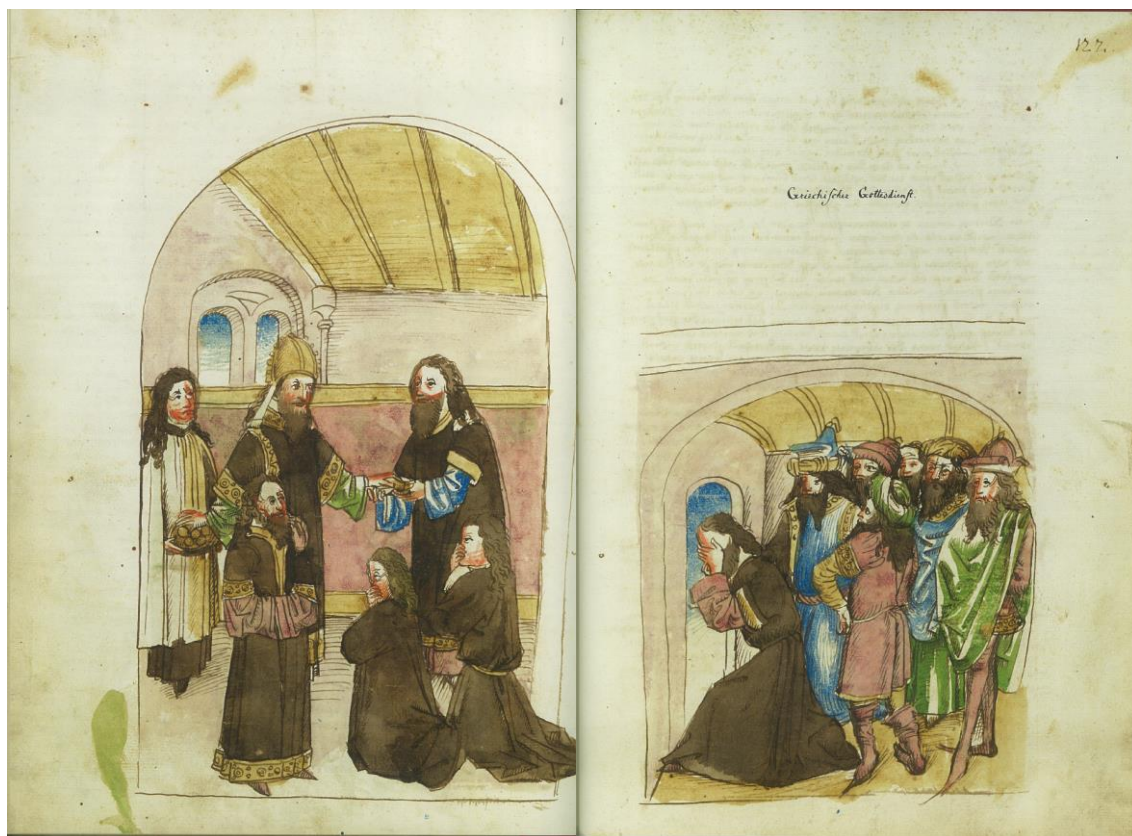 127.
Griechischer Gottesdienst.